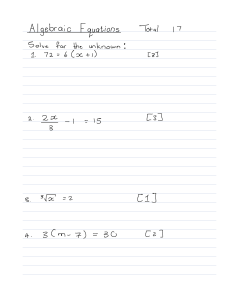 Algebraic Equations Total 17
Solve for the unknown:
1. 72 = 6 (x + 1) [2]
2. 2x/3 - 1 = 15 [3]
3. ∛x = 2 [1]
4. 3(m - 7) = 30 [2]